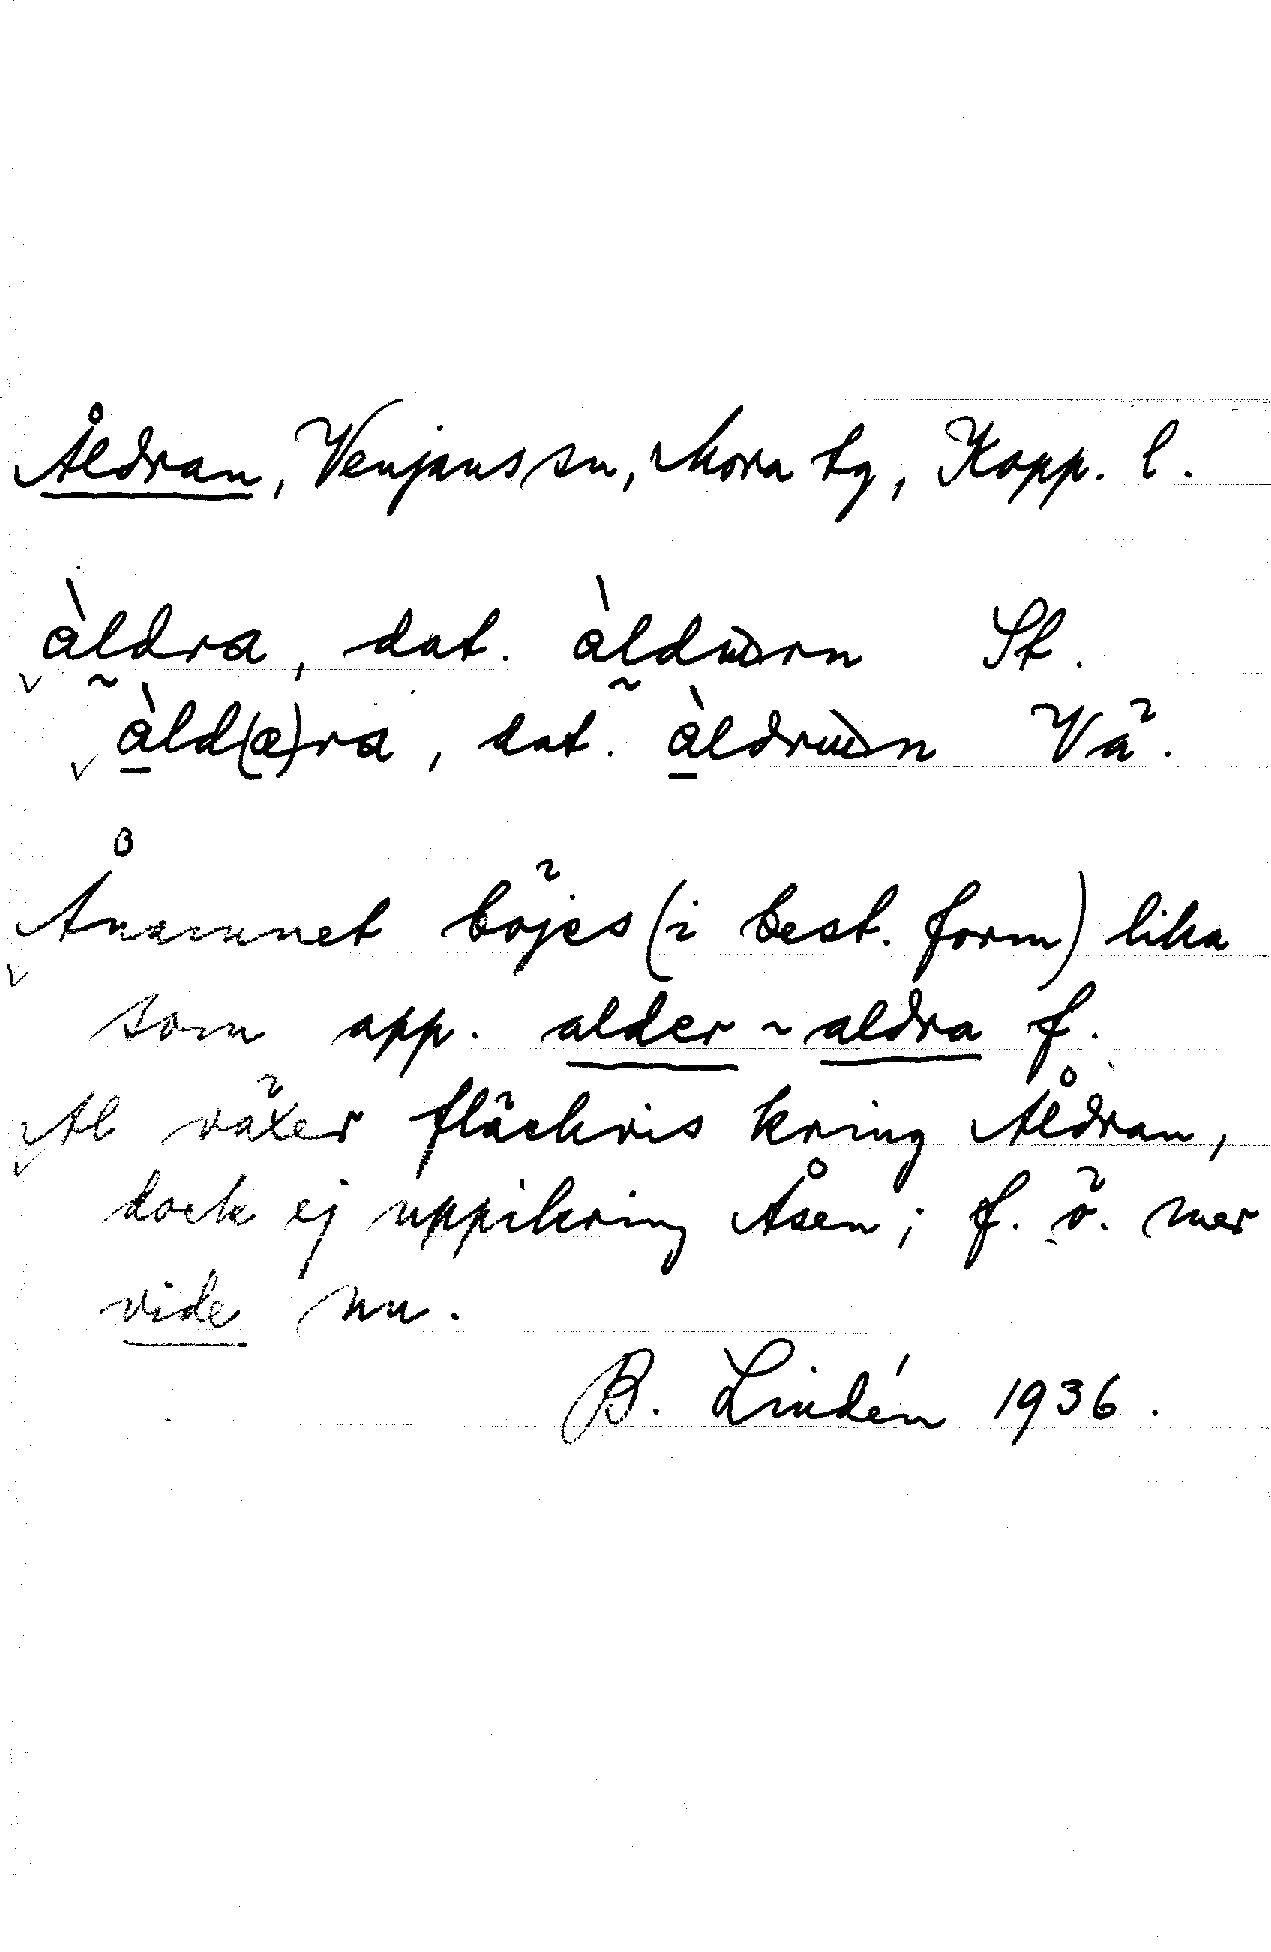 Åldran, Venjans sn, Mora tg, Kopp. l.
àldra, dat. àldɯrn St.
~ àld(ə)ra, dat. ~ àldrɯn Vä.
Ånamnet böjes (i best. form) lika
som app. alder ~ aldra f.
Al växer fläckvis kring Åldran,
dock ej uppikring Åsen; f. ö. mer
vide nu.
B. Lindén 1936.